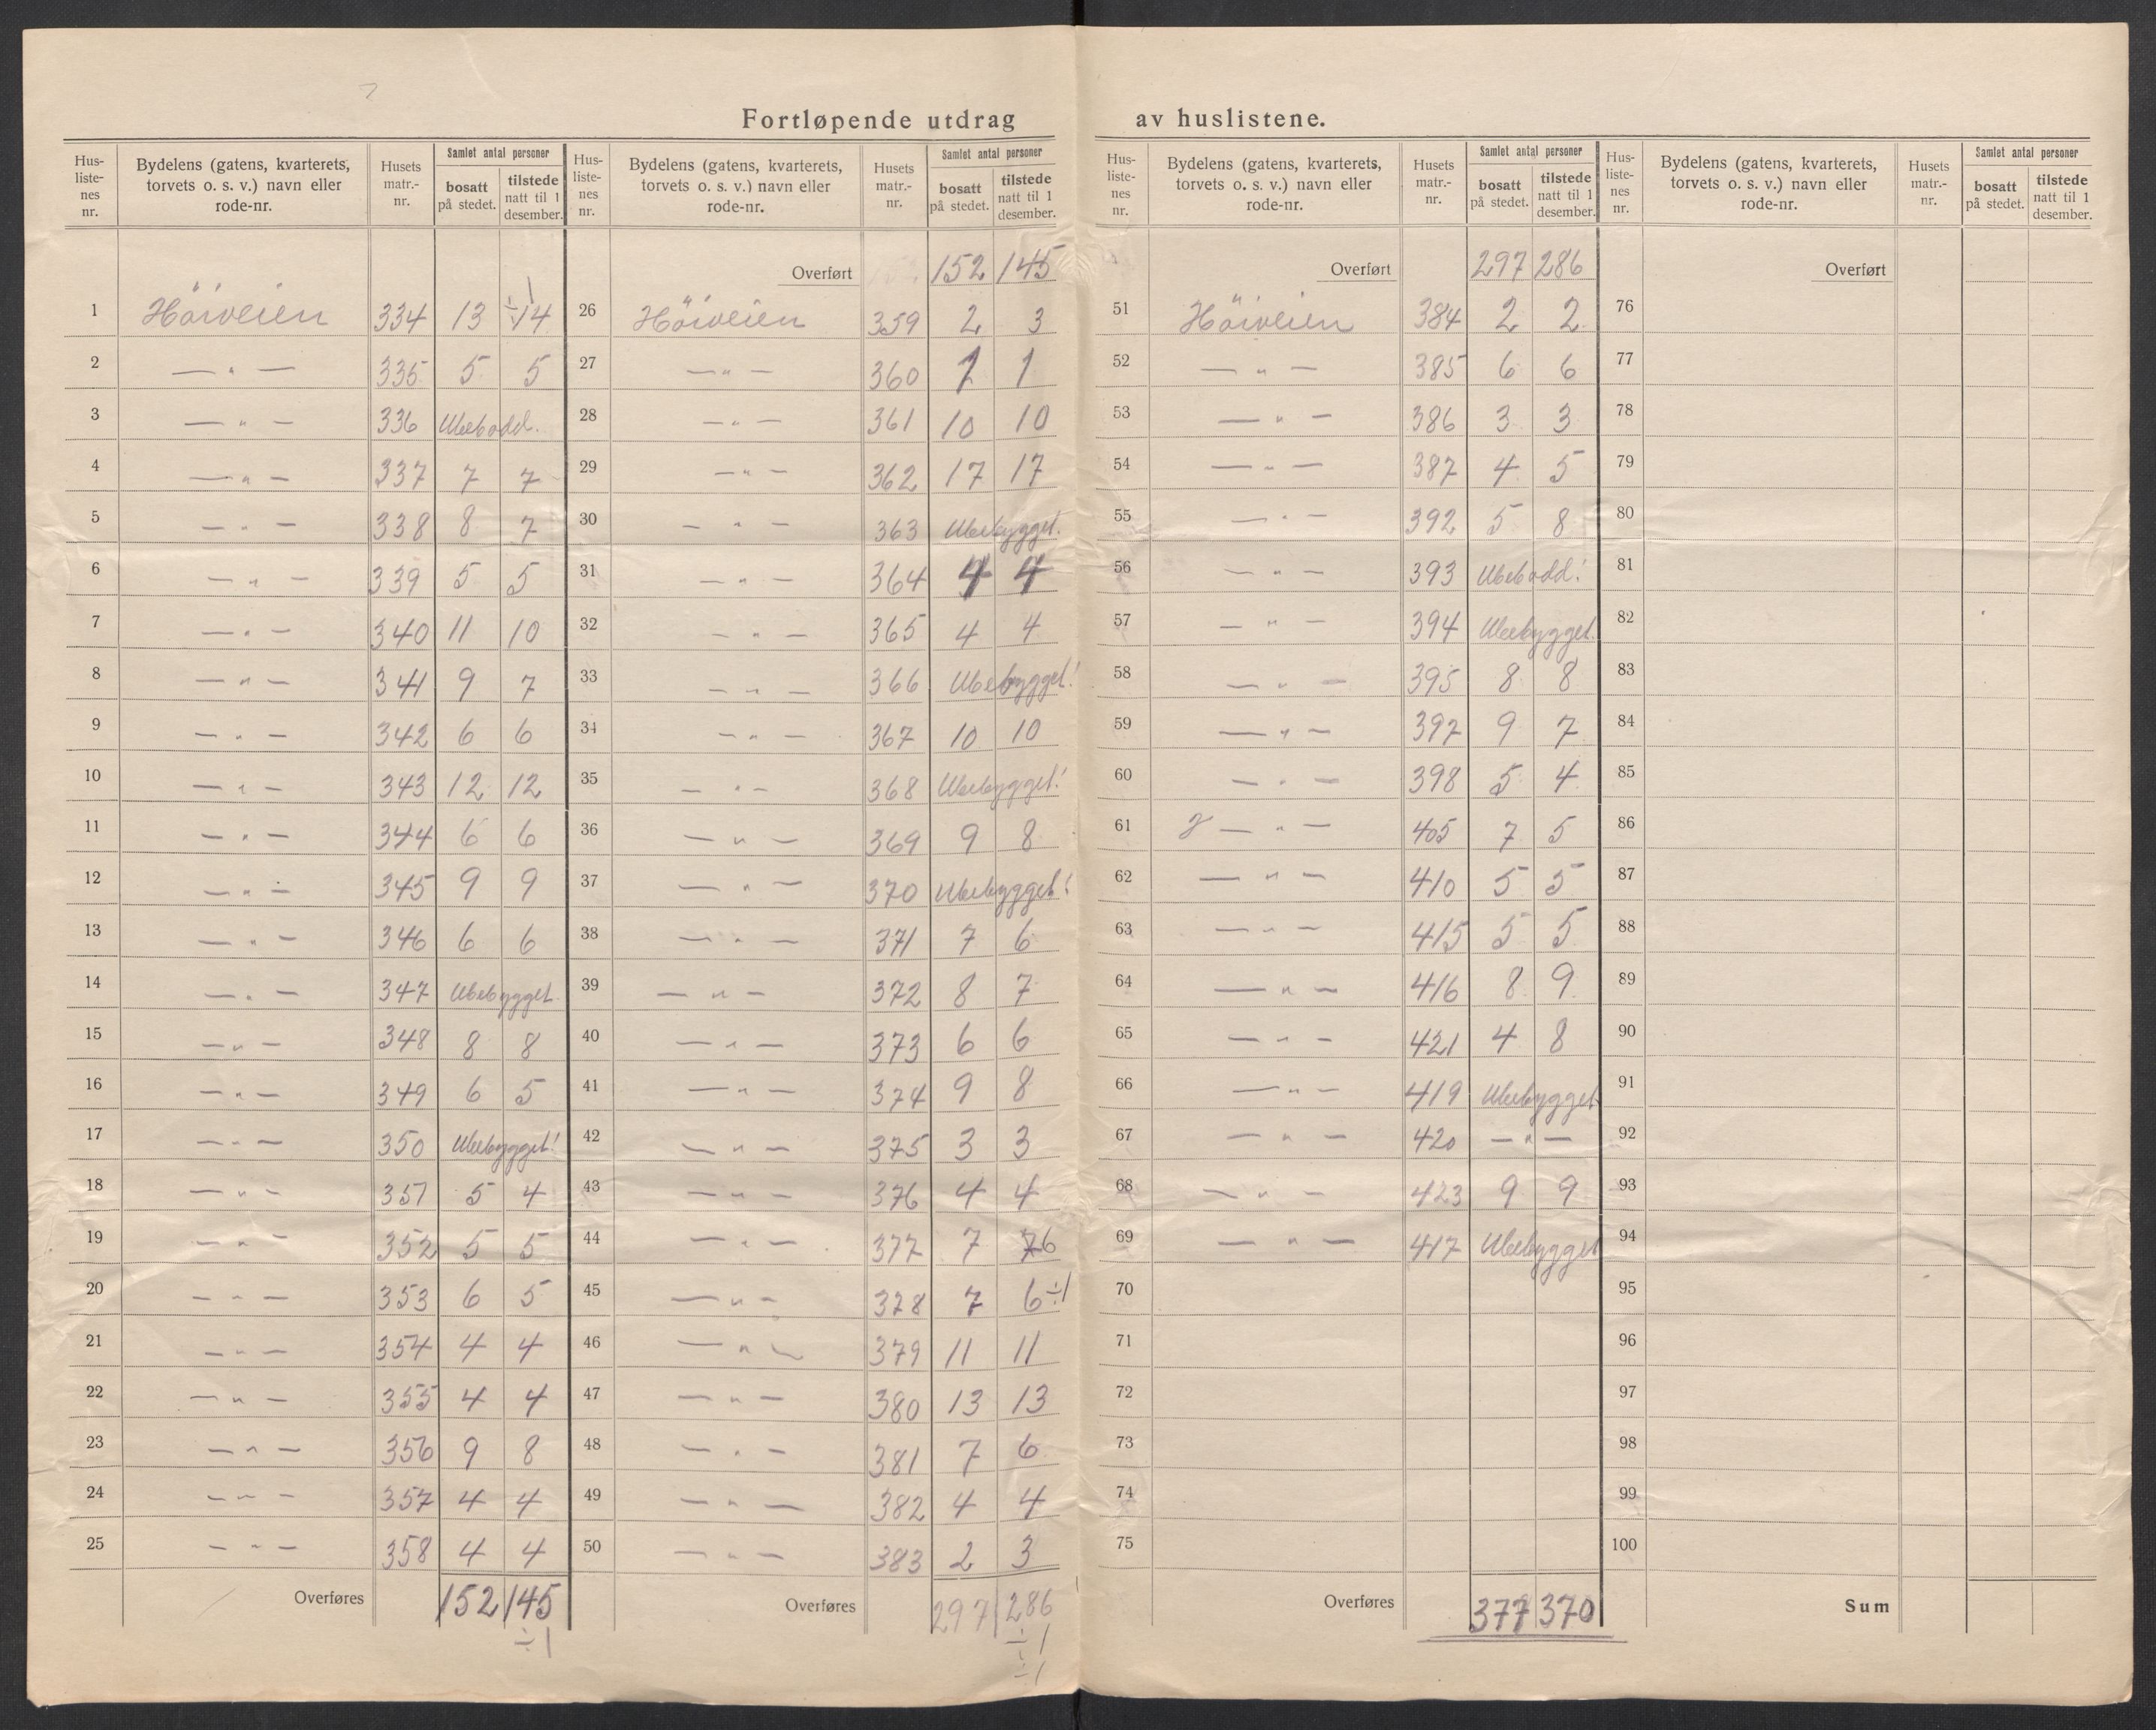 Fortløpende utdrag av huslistene.
Hus-listenes nr. | Bydelens (gatens, kvarterets, torvets o. s. v.) navn eller rode-nr. | Husets matr.-nr. | Samlet antal personer bosatt på stedet. | tilstede natt til 1 desember.
1 Höiveien 334 13 ÷1 14
2 —"— 335 5 5
3 —"— 336 Ubebodd.
4 —"— 337 7 7
5 —"— 338 8 7
6 —"— 339 5 5
7 —"— 340 11 10
8 —"— 341 9 7
9 —"— 342 6 6
10 —"— 343 12 12
11 —"— 344 6 6
12 —"— 345 9 9
13 —"— 346 6 6
14 —"— 347 Ubebygget.
15 —"— 348 8 8
16 —"— 349 6 5
17 —"— 350 Ubebygget!
18 —"— 351 5 4
19 —"— 352 5 5
20 —"— 353 6 5
21 —"— 354 4 4
22 —"— 355 4 4
23 —"— 356 9 8
24 —"— 357 4 4
25 —"— 358 4 4
Overføres 152 145
÷1
Hus-listenes nr. | Bydelens (gatens, kvarterets, torvets o. s. v.) navn eller rode-nr. | Husets matr.-nr. | Samlet antal personer bosatt på stedet. | tilstede natt til 1 desember.
Overført 152 145
26 Höiveien 359 2 3
27 —"— 360 1 1
28 —"— 361 10 10
29 —"— 362 17 17
30 —"— 363 Ubebygget.
31 —"— 364 4 4
32 —"— 365 4 4
33 —"— 366 Ubebygget!
34 —"— 367 10 10
35 —"— 368 Ubebygget!
36 —"— 369 9 8
37 —"— 370 Ubebygget!
38 —"— 371 7 6
39 —"— 372 8 7
40 —"— 373 6 6
41 —"— 374 9 8
42 —"— 375 3 3
43 —"— 376 4 4
44 —"— 377 7 7 6
45 —"— 378 7 6 ÷1
46 —"— 379 11 11
47 —"— 380 13 13
48 —"— 381 7 6
49 —"— 382 4 4
50 —"— 383 2 3
Overføres 297 286
÷1
÷1
Hus-listenes nr. | Bydelens (gatens, kvarterets, torvets o. s. v.) navn eller rode-nr. | Husets matr.-nr. | Samlet antal personer bosatt på stedet. | tilstede natt til 1 desember.
Overført 297 286
51 Höiveien 384 2 2
52 —"— 385 6 6
53 —"— 386 3 3
54 —"— 387 4 5
55 —"— 392 5 8
56 —"— 393 Ubebodd!
57 —"— 394 Ubebygget.
58 —"— 395 8 8
59 —"— 397 9 7
60 —"— 398 5 4
61 —"— 405 7 5
62 —"— 410 5 5
63 —"— 415 5 5
64 —"— 416 8 9
65 —"— 421 4 8
66 —"— 419 Ubebygget
67 —"— 420 —"—
68 —"— 423 9 9
69 —"— 417 Ubebygget
70
71
72
73
74
75
Overføres 377 370
Hus-listenes nr. | Bydelens (gatens, kvarterets, torvets o. s. v.) navn eller rode-nr. | Husets matr.-nr. | Samlet antal personer bosatt på stedet. | tilstede natt til 1 desember.
Overført
76
77
78
79
80
81
82
83
84
85
86
87
88
89
90
91
92
93
94
95
96
97
98
99
100
Sum